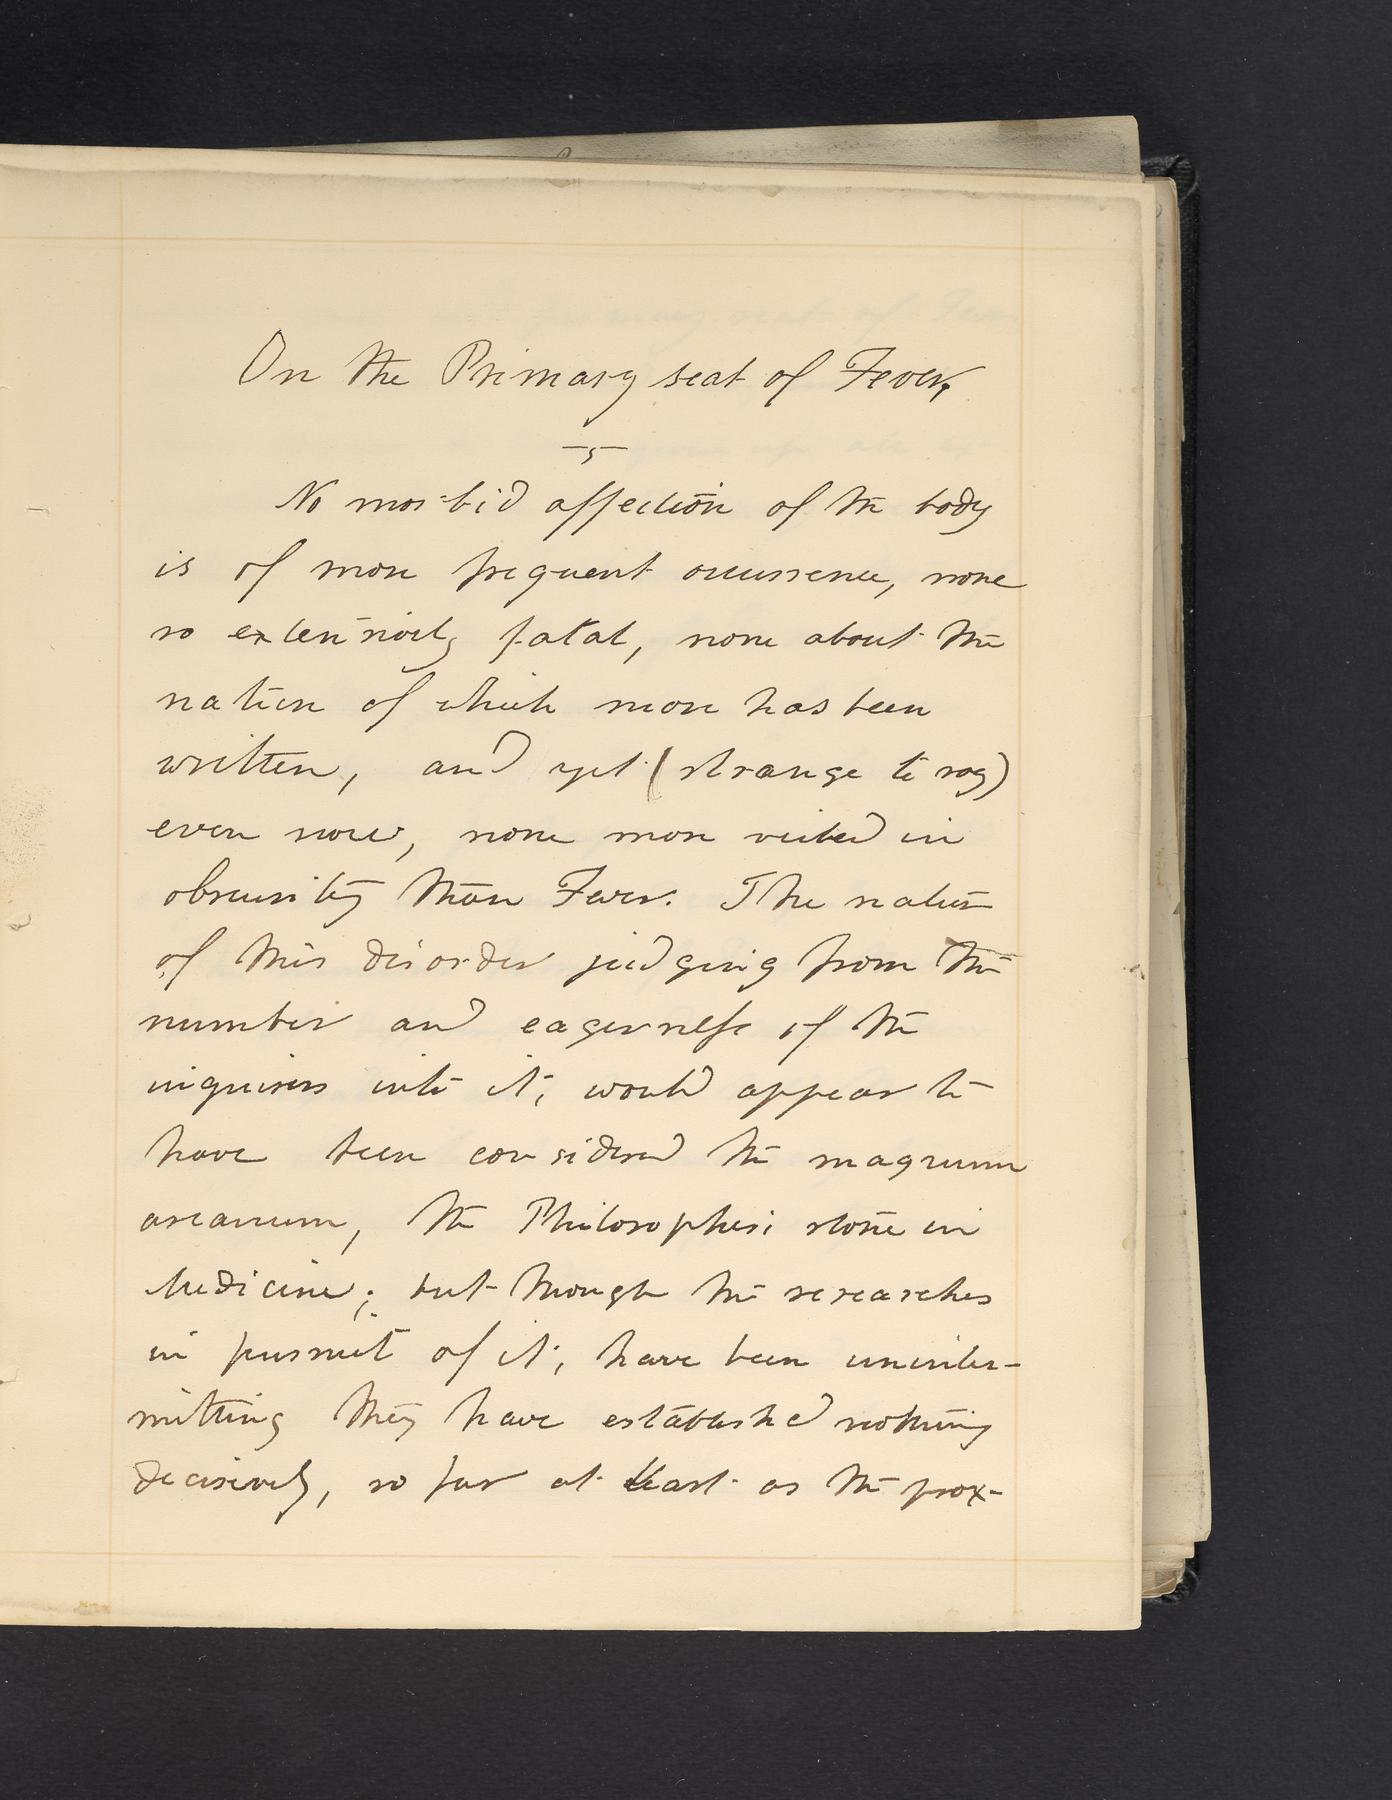 On the Primary seat of Fever,
No morbid affection of the body
is of more frequent occurrence, none
so extensively fatal, none about the
nature of which more has been
written, and yet (strange to say)
even now, none more veiled in
obscurity than Fever. The nature
of this disorder judging from the
number and eagerness of the
inquirers into it, would appear to
have been considered the magnum
arcanum, the Philosophers stone in
Medicine; but though the researches
in pursuit of it, have been uninter-
mitting they have established nothing
decisively, so far at least as the prox-